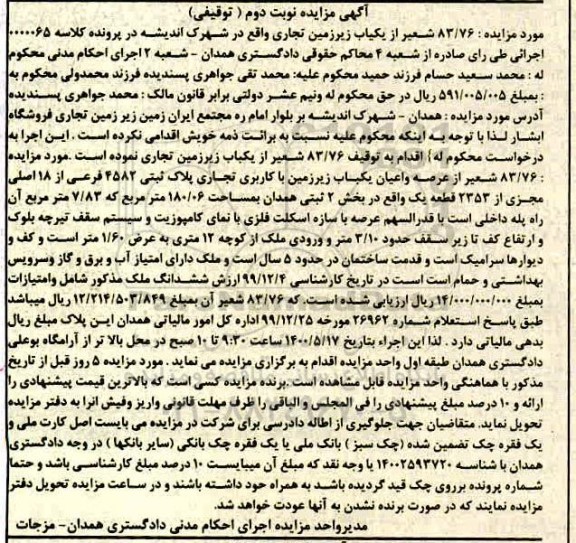 آگهی مزایده نوبت دوم ( توقیفی)
مورد مزایده : ۸۳/۷۶ شعیر از یکباب زیرزمین تجاری واقع در شهرک اندیشه در پرونده کلاسه ۰۰۰۰۰۶۵
اجرائی طی رای صادره از شعبه ۴ محاکم حقوقی دادگستری همدان - شعبه ۲ اجرای احکام مدنی محکوم
له : محمد سعید حسام فرزند حمید محکوم علیه: محمد تقی جواهری پسندیده فرزند محمدولی محکوم به
: بمبلغ ۵۹۱/۰۰۵/۰۰۵ ریال در حق محکوم له ونیم عشر دولتی برابر قانون مالک : محمد جواهری پسندیده
آدرس مورد مزایده : همدان - شهرک اندیشه بر بلوار امام ره مجتمع ایران زمین زیر زمین تجاری فروشگاه
ابشار لذا با توجه به اینکه محکوم علیه نسبت به برائت ذمه خویش اقدامی نکرده است . این اجرا به
درخواست محکوم له} اقدام به توقیف ۸۳/۷۶ شعیر از یکباب زیرزمین تجاری نموده است .مورد مزایده
: ۸۳/۷۶ شعیر از عرصه واعیان یکباب زیرزمین با کاربری تجاری پلاک ثبتی ۴۵۸۲ فرعی از ۱۸ اصلی
مجزی از ۲۳۵۳ قطعه یک واقع در بخش ۲ ثبتی همدان بمساحت ۱۸۰/۰۶ متر مربع که ۷/۸۳ متر مربع آن
راه پله داخلی است با قدرالسهم عرصه با سازه اسکلت فلزی با نمای کامپوزیت و سیستم سقف تیرچه بلوک
و ارتفاع کف تا زیر سقف حدود ۳/۱۰ متر و ورودی ملک از کوچه ۱۲ متری به عرض ۱/۶۰ متر است و کف و
دیوارها سرامیک است و قدمت ساختمان در حدود ۵ سال است و ملک دارای امتیاز آب و برق و گاز وسرویس
بهداشتی و حمام است است در تاریخ کارشناسی ۹۹/۱۲/۴ ارزش ششدانگ ملک مذکور شامل وامتیازات
بمبلغ ۱۴/۰۰۰/۰۰۰/۰۰۰ ریال ارزیابی شده است. که ۸۳/۷۶ شعیر آن بمبلغ ۱۲/۲۱۴/۵۰۳/۸۴۹ ریال میباشد
طبق پاسخ استعلام شماره ۲۶۹۶۲ مورخه ۹۹/۱۲/۲۵ اداره کل امور مالیاتی همدان این پلاک مبلغ ریال
بدهی مالیاتی دارد . لذا این اجراء بتاریخ ۱۴۰۰/۵/۱۷ ساعت ۹:۳۰ تا ۱۰ صبح در محل بالا تر از آرامگاه بوعلی
دادگستری همدان طبقه اول واحد مزایده اقدام به برگزاری مزایده می نماید . مورد مزایده ۵ روز قبل از تاریخ
مذکور با هماهنگی واحد مزایده قابل مشاهده است .برنده مزایده کسی است که بالاترین قیمت پیشنهادی را
ارائه و ۱۰ درصد مبلغ پیشنهادی را فی المجلس و الباقی را ظرف مهلت قانونی واریز وفیش انرا به دفتر مزایده
تحویل نماید. متقاضیان جهت جلوگیری از اطاله دادرسی برای شرکت در مزایده می بایست اصل کارت ملی و
یک فقره چک تضمین شده (چک سبز ) بانک ملی یا یک فقره چک بانکی (سایر بانکها ) در وجه دادگستری
همدان با شناسه ۱۴۰۰۲۵۹۳۷۲۰ یا وجه نقد که مبلغ آن میبایست ۱۰ درصد مبلغ کارشناسی باشد و حتما
شماره پرونده برروی چک قید گردیده باشد به همراه خود داشته باشند و در ساعت مزایده تحویل دفتر
مزایده نمایند که در صورت برنده نشدن به آنها عودت خواهد شد.
مدیرواحد مزایده اجرای احکام مدنی دادگستری همدان- مزجات